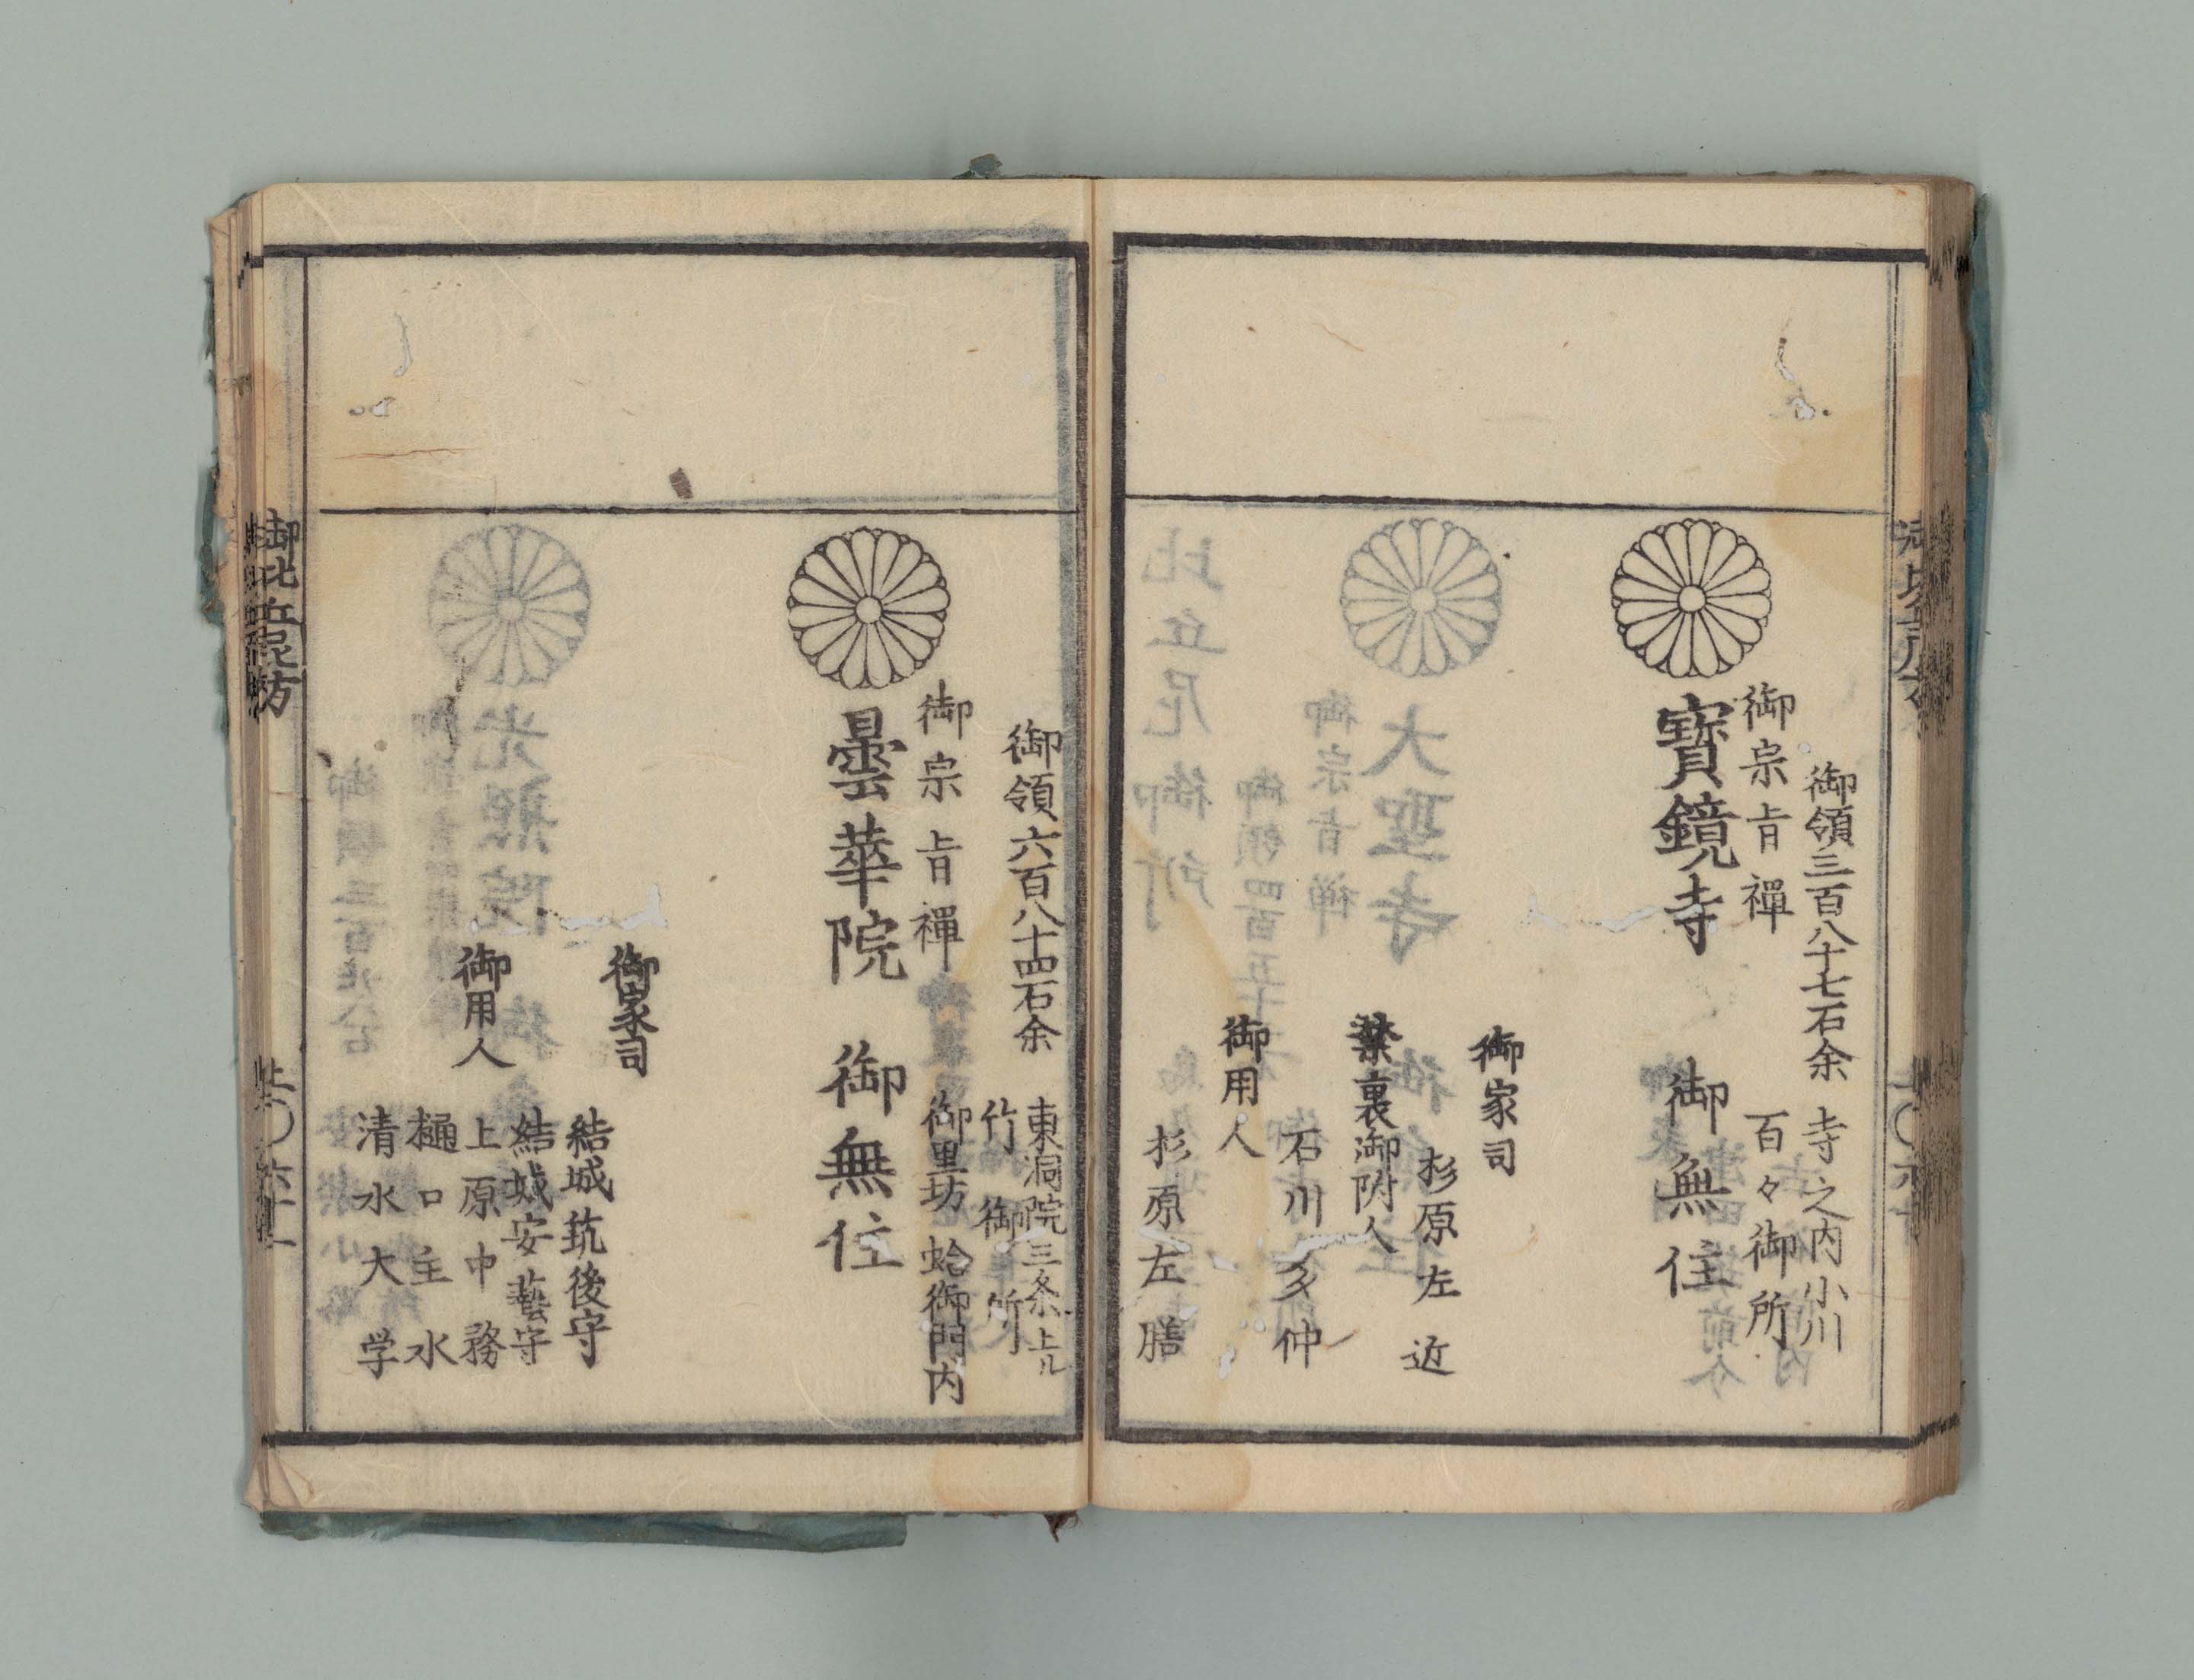 御領三百八十七石余
寺之内小川
百々御所
御宗旨禪
寶鏡寺
御無住
御家司
杉原左近
禁裏御附人
石川多仲
御用人
杉原左膳
御領六百八十四石余
東洞院三条上ル
竹御所
御里坊 蛤御門内
御宗旨禪
曇華院
御無住
御家司
結城筑後守
結城安藝守
御用人
上原中務
樋口主水
清水大学
御比丘尼方